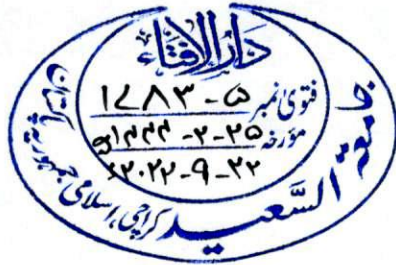 دَارُالاِفتَاء
فتویٰ نمبر ۵-۱۷۸۳
مؤرخہ ۲۵-۲-۱۴۴۴ھ
۲۲-۹-۲۰۲۲ء
جامعۃ السَّعید کراچی، اسلامی جمہوریہ پاکستان